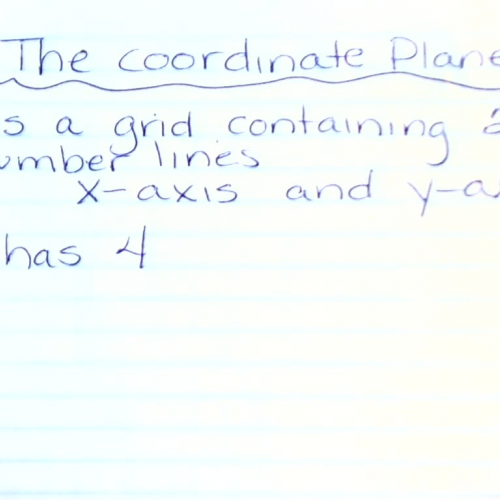 The coordinate Plane
s a grid containing 2
umber lines
x-axis and y-ax
has 4